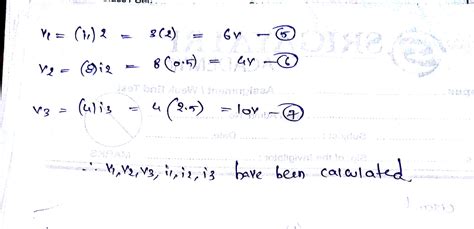 v1 = (i1) 2 = 3(2) = 6v - ⑤
v2 = (8) i2 = 8(0.5) = 4v - ⑥
v3 = (4) i3 = 4(2.5) = 10v - ⑦
∴ v1, v2, v3, i1, i2, i3 have been calculated